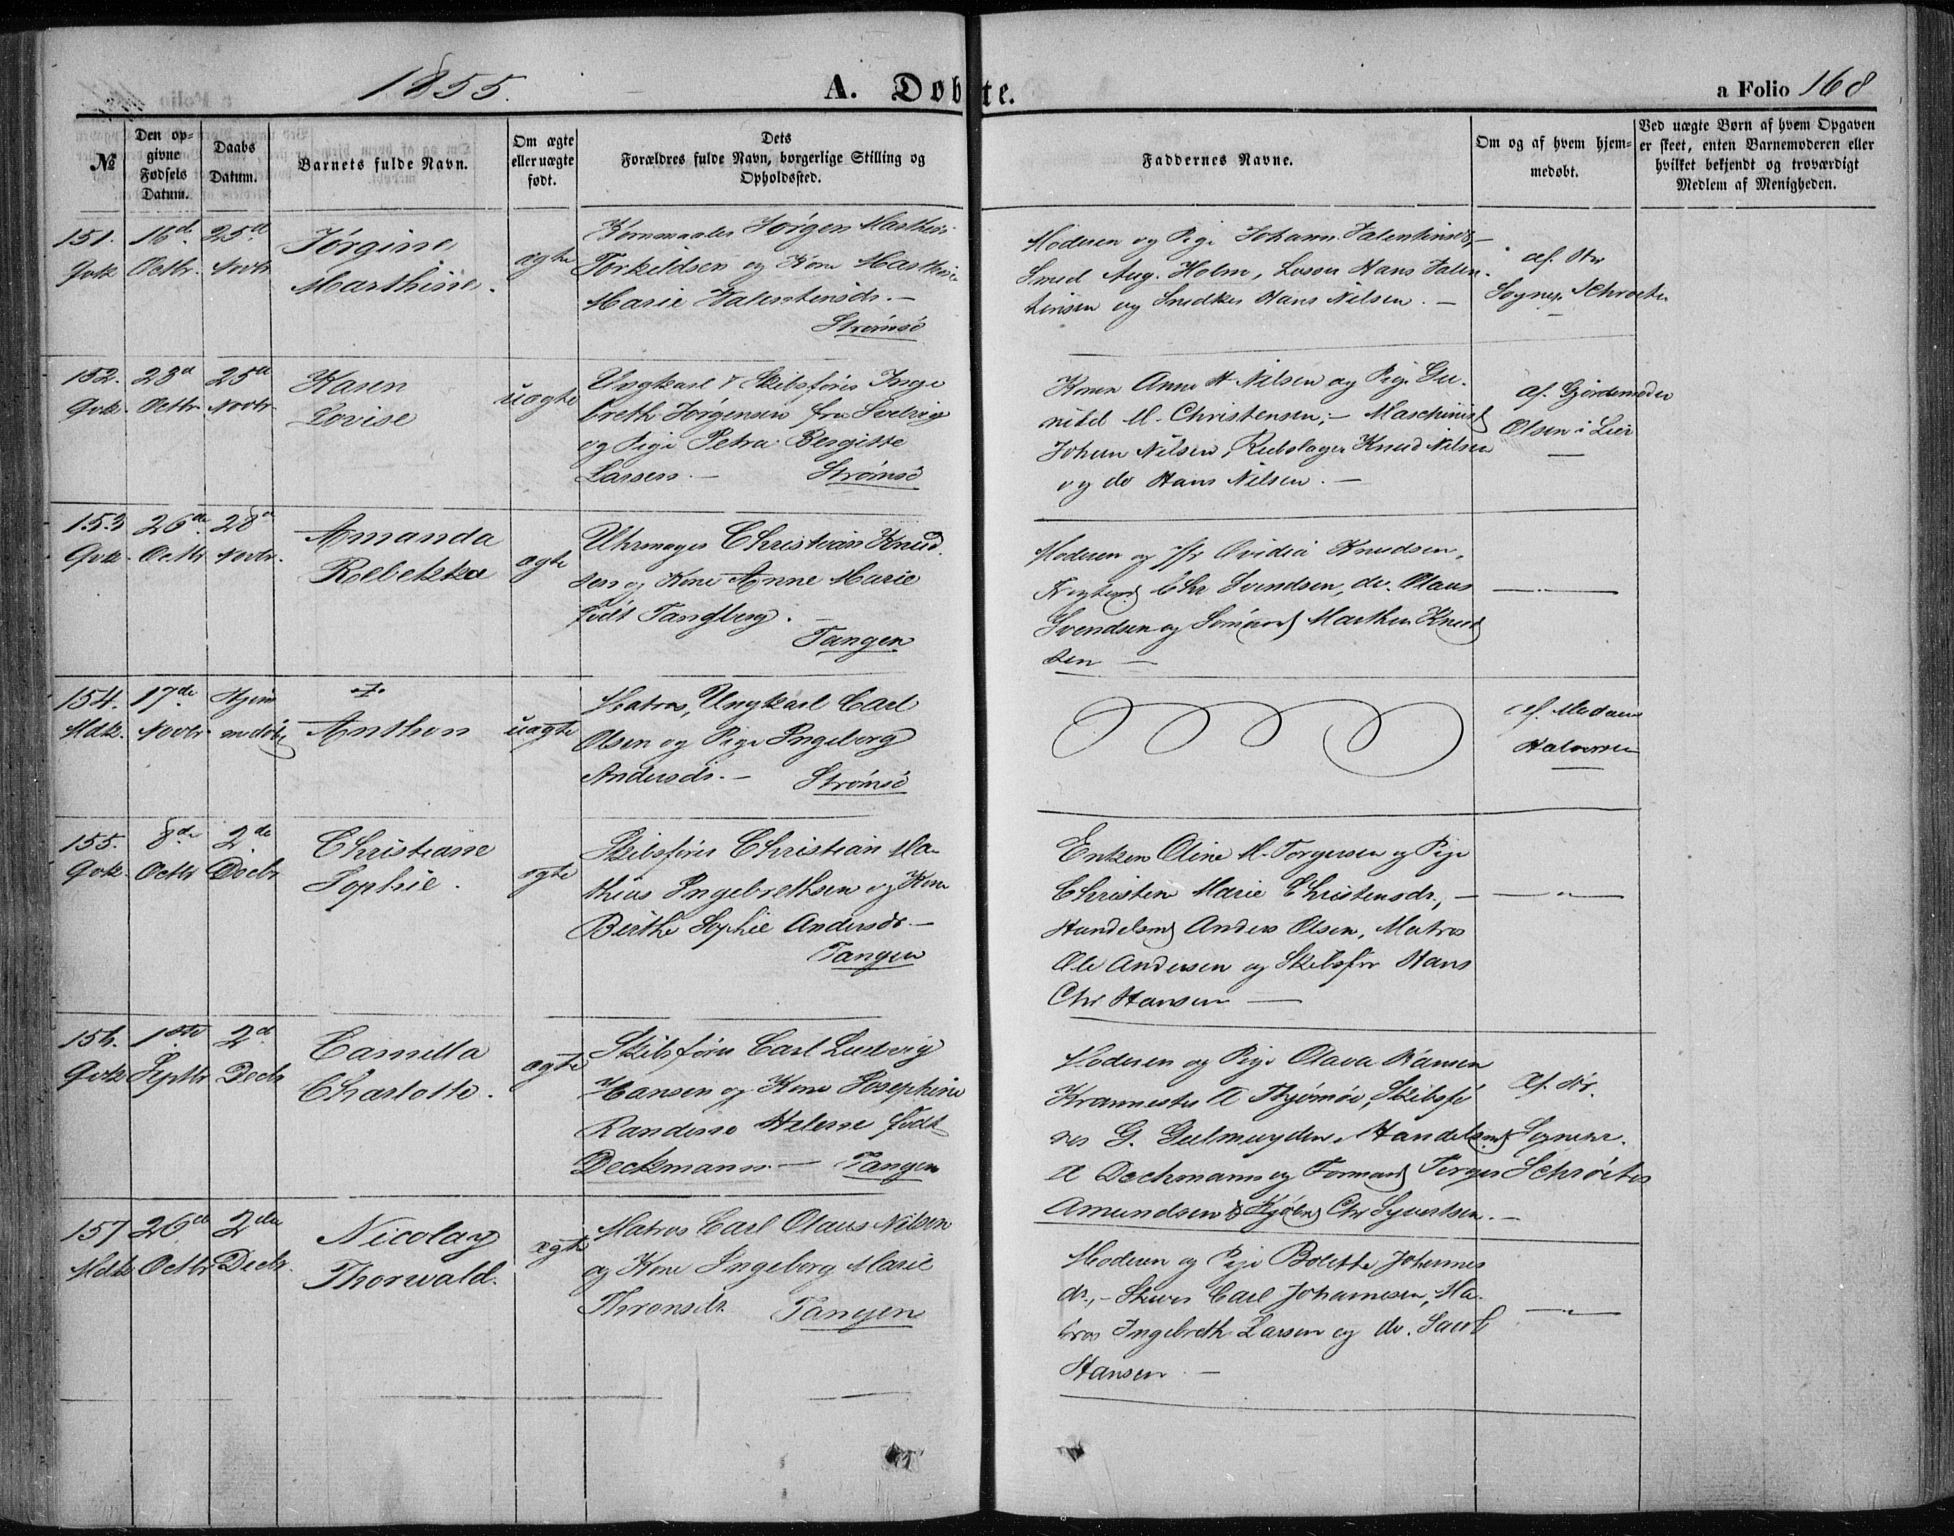 1855.
A. Døbte.
a Folio 168
№
Den op-
givne
Fødsels
Datum.
Daabs
Datum.
Barnets fulde Navn.
Om ægte
eller uægte
født.
Dets
Forældres fulde Navn, borgerlige Stilling og
Opholdssted.
Faddernes Navne.
Om og af hvem hjem-
medøbt.
Ved uægte Børn af hvem Opgaven
er skeet, enten Barnemoderen eller
hvilket bekjendt og troværdigt
Medlem af Menigheden.
151.
Qvk.
16d.
Octbr.
25d.
Novbr.
Jørgine
Marthine.
ægte
Kornmaaler Jørgen Mathias
Torkildsen og Kone Marthine
Marie Valentinsdr. —
Strømsø
Moderen og Pige Johann. Valentinsdr, —
Smed Aug. Holm, Losser Hans Valen-
tinsen og Snedker Hans Nilsen. —
af Hr
Sognepr. Schrøeter
152.
Qvk.
28d
Octbr.
25d
Novbr.
Karen
Lovise
uægte
Ungkarl & Skibsfører Inge
breth Jørgensen fra Svelvig
og Pige Petra Bergitte
Larsen. —
Strømsø
Konen Anne H Nilsen og Pige Gu-
nild M. Christensen; — Maschinist
Johan Nilsen, Rebslager Knud Nilsen
og do Hans Nilsen. —
af Gjordemoder
Olsen i Lier
153
Qvk.
26de
Octbr
28d
Novbr.
Amanda
Rebekka
ægte
Uhrmager Christian Knud-
sen og Kone Anne Marie
født Tandberg. —
Tangen
Moderen og Jfr Ovidia Knudsen,
Chr Svendsen, do. Olaus
Svendsen og Sømand Marthin Knud
sen —
— " —
154.
Mdk.
17de
Novbr
Hjem
medøbt
+
Anthon
uægte
Matros, Ungkarl Carl
Olsen og Pige Ingeborg
Andersdr. —
Strømsø
af Madam
Halvorsen
155.
Qvk.
8de
Octbr
2de
Decbr
Christiane
Sophie.
ægte
Skibsfører Christian Ma-
thias Ingebrethsen og Kone
Berthe Sophie Andersdr —
Tangen
Enken Oline M. Torgersen og Pige
Christine Marie Christensdr, —
Handelsmd Anders Olsen, Matros
Ole Andersen og Skibsfør Hans
Chr Hansen —
— " —
156.
Qvk
1ste
Septbr
2d
Decbr
Camilla
Charlotte.
ægte
Skibsfører Carl Ludvig
Hansen og Kone Josephine
Randine Helene født
Deckmann. — Tangen
Moderen og Pige Olava Hansen
A Thjømøe, Skibsfø
rer G. Gulmuyden, Handelsmd
A Deckmann og Formand Torger
Amundsen & Chr Syvertsen. —
af Hr.
Sognepr.
Schrøeter
157
Mdk
26de
Octbr
2den
Decbr.
Nicolay
Thorwald.
ægte
Matros Carl Olaus Nilsen
og Kone Ingeborg Marie
Tangen
Moderen og Pige Bolette Johannes
dr, — Carl Johannesen, Ma-
tros Ingebreth Larsen og do. Jacob
Hansen —
— " —